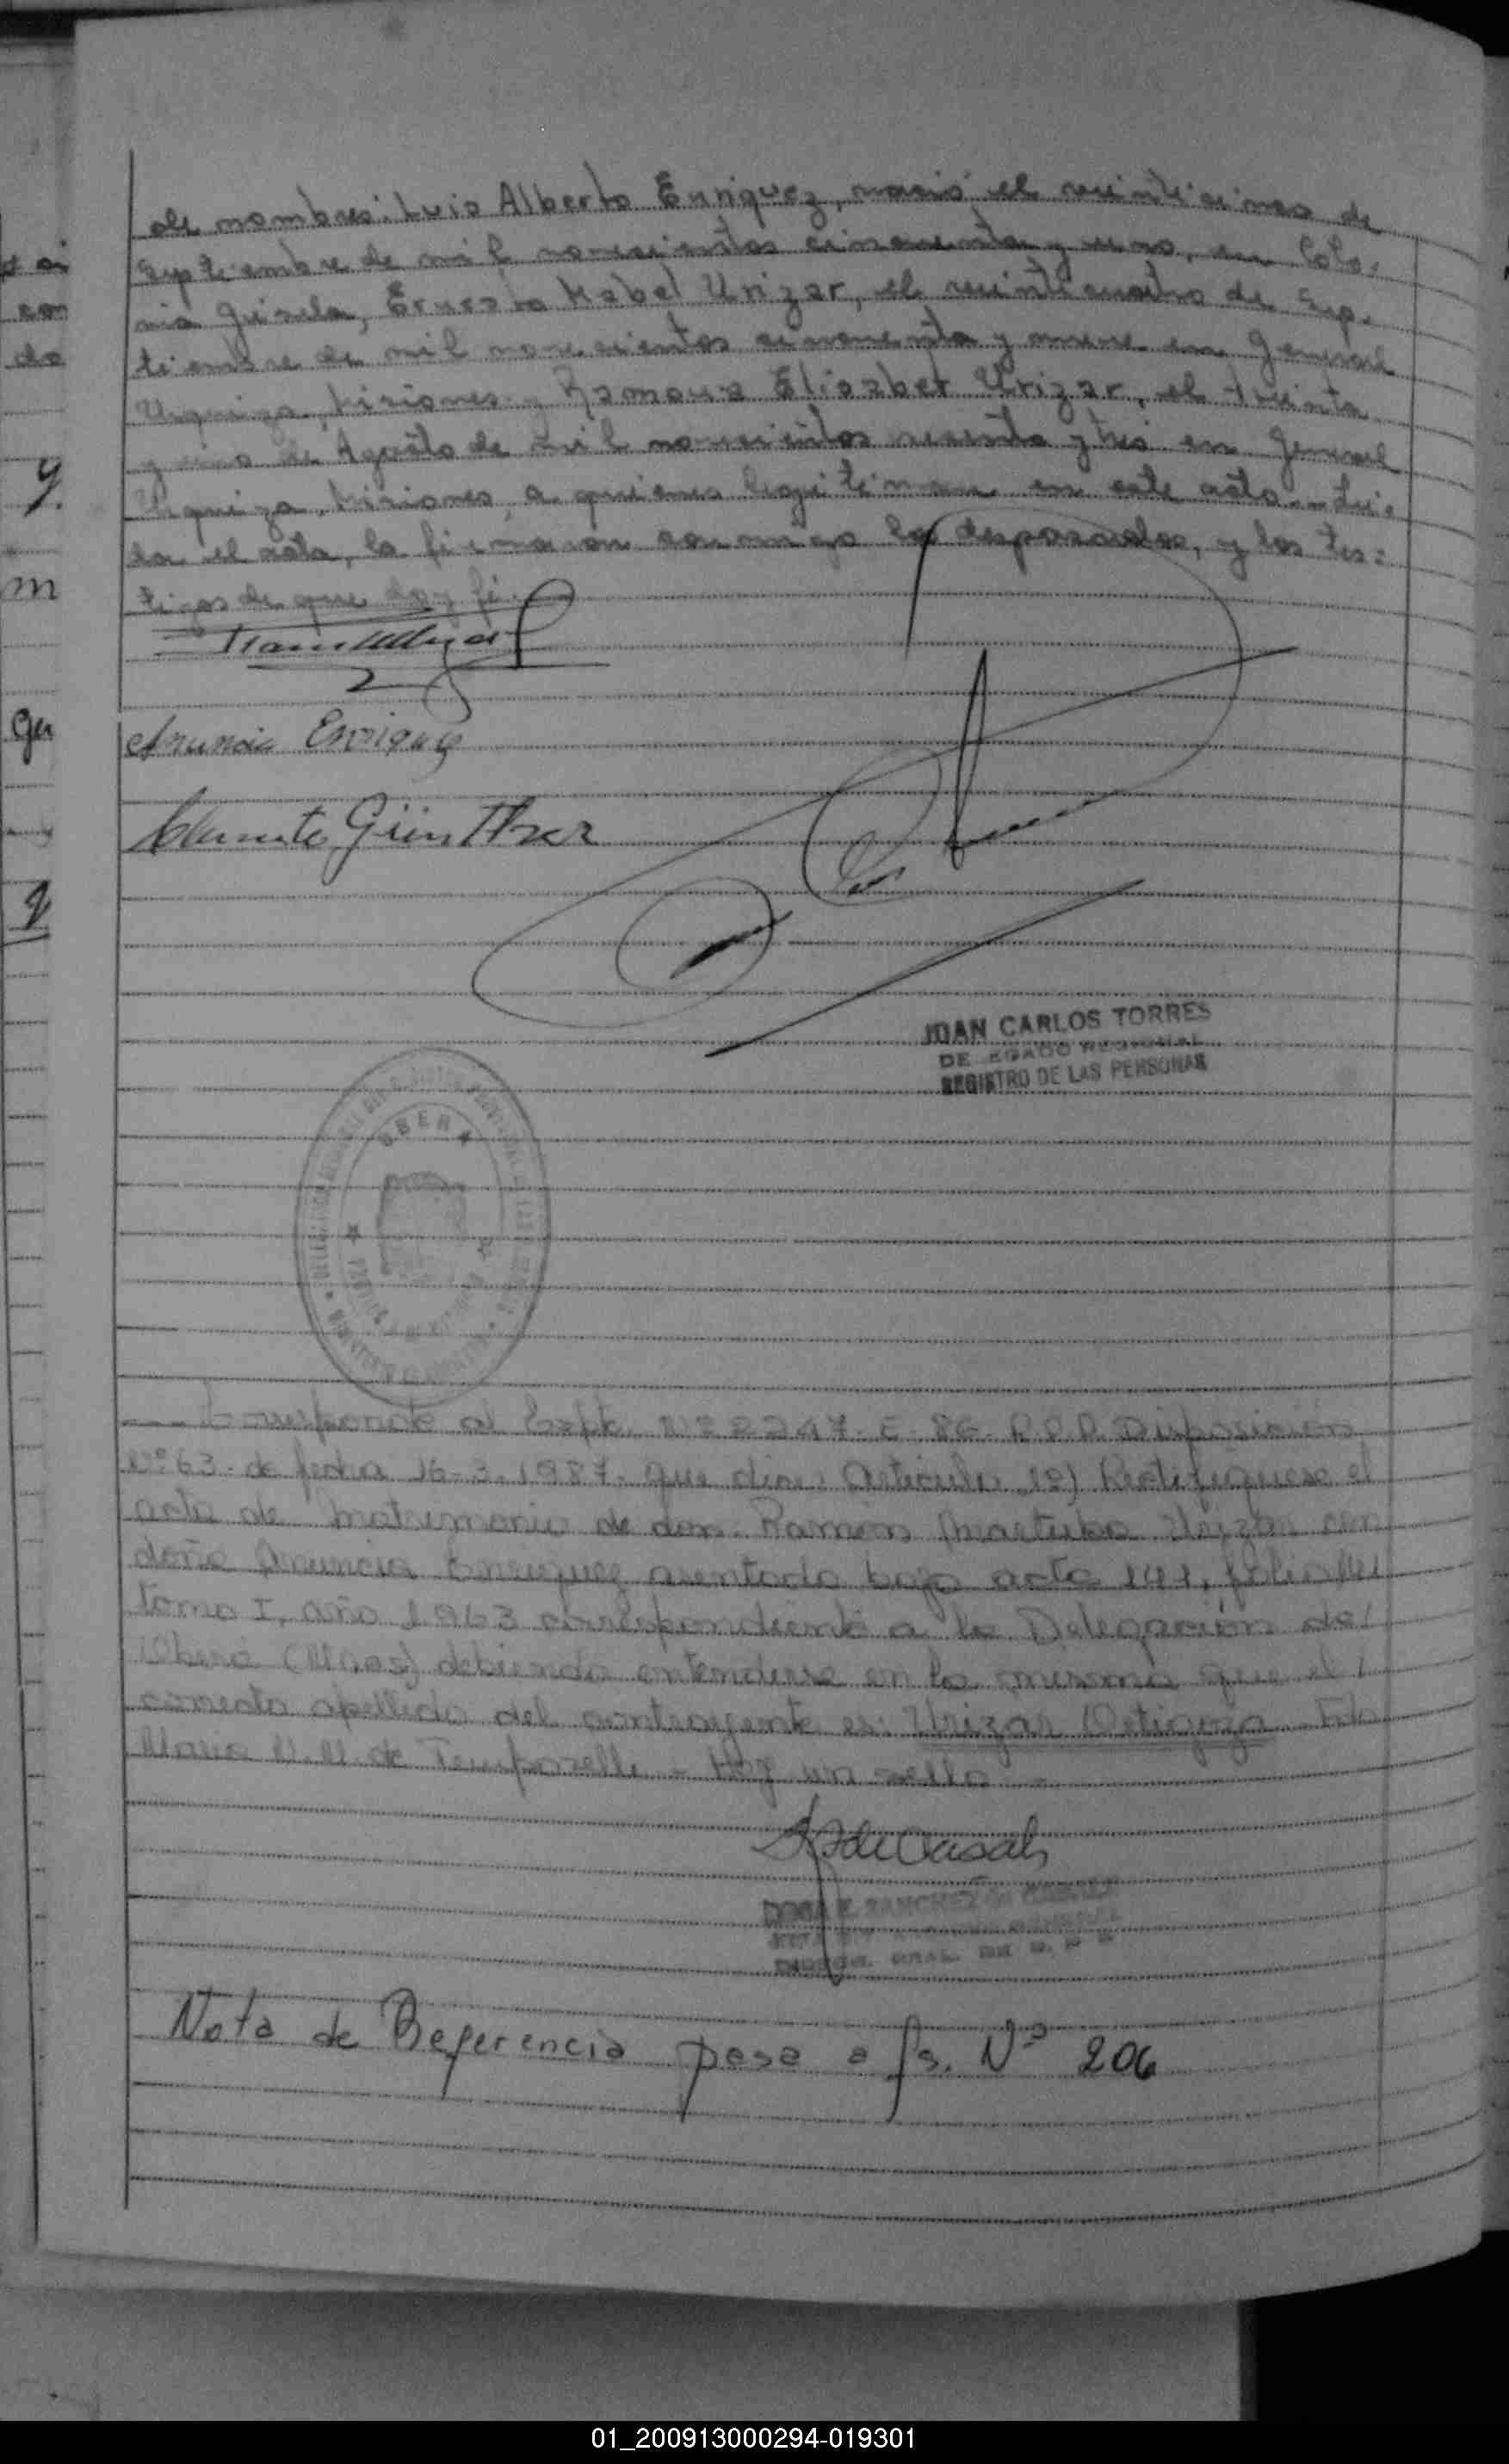 de nombres: Luis Alberto Enriquez, nació el veinticinco de
Septiembre de mil novecientos cincuenta y uno, en Colo-
nia Guisela, Ernesto Mabel Urizar, el veinticuatro de Sep-
tiembre de mil novecientos cincuenta y nueve en General
Urquiza, Misiones y Ramona Elisabet Urizar, el treinta
y uno de Agosto de mil novecientos sesenta y tres en General
Urquiza, Misiones, a quienes legitiman en este acto.- Leí-
da el acta, la firmaron conmigo los desposados, y los tes-
tigos de que doy fé.
Anuncia Enriquez
Clemente Günther
JUAN CARLOS TORRES
DELEGADO REGIONAL
REGISTRO DE LAS PERSONAS
OBERA
--- Corresponde al Expte. Nº 2247-E-86-R.P.P. Disposición
Nº 63- de fecha 16-3-1987- que dice: Artículo 1º) Rectifíquese el
acta de matrimonio de don Ramón Urizar con
doña Anuncia Enriquez asentada bajo acta 141, folio 141
tomo I, año 1963 correspondiente a la Delegación de/
Oberá (Mnes) debiendo entenderse en la misma que el/
correcto apellido del contrayente es: Urizar Ortigoza Fdo
Maria N.N. de Temporelli - Hay un sello -
SANCHEZ de CASALS
Nota de Referencia pasa a fs. Nº 206
01_200913000294-019301